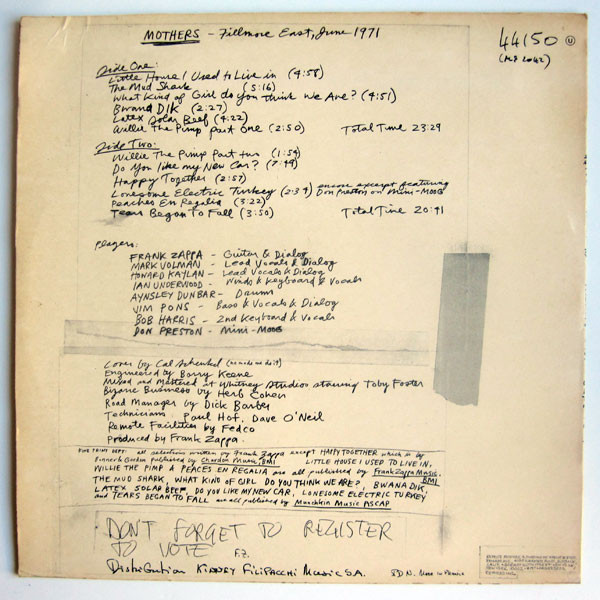 MOTHERS - Fillmore East, June 1971
44150 U
Side One:
Little House I Used to Live in (4:58)
The Mud Shark (5:16)
What Kind of Girl do you Think we Are? (4:51)
Bwana DIK (2:27)
Latex Solar Beef (4:22)
Willie The Pimp Part One (2:50) Total Time 23:29
Side Two:
Willie The Pimp Part two (1:54)
Do You like my New Car? (7:49)
Happy Together (2:57)
Lonesome Electric Turkey (2:34) encore excerpt featuring
Don Preston on Mini-Moog
Peaches En Regalia (3:22)
Tears Began To Fall (3:50) Total Time 20:41
Players:
FRANK ZAPPA - Guitar & Dialog
MARK VOLMAN - Lead Vocals & Dialog
HOWARD KAYLAN - Lead Vocals & Dialog
IAN UNDERWOOD - Winds & Keyboard & Vocals
AYNSLEY DUNBAR - Drums
JIM PONS - Bass & Vocals & Dialog
BOB HARRIS - 2nd Keyboard & Vocals
DON PRESTON - Mini-Moog
Cover by Cal Schenkel (he made me do it)
Engineered by Barry Keene
Mixed and Mastered at Whitney Studios starring Toby Foster
Bizarre Business by Herb Cohen
Road Manager by Dick Barber
Technicians: Paul Hof, Dave O'Neil
Remote Facilities by Fedco
Produced by Frank Zappa.
FINE PRINT DEPT: all selections written by Frank Zappa except HAPPY TOGETHER which is by
Bonner & Gordon published by Chardon Music, BMI LITTLE HOUSE I USED TO LIVE IN,
WILLIE THE PIMP & PEACES EN REGALIA are all published by Frank Zappa Music, BMI
THE MUD SHARK, WHAT KIND OF GIRL DO YOU THINK WE ARE?, BWANA DIK,
LATEX SOLAR BEEF, DO YOU LIKE MY NEW CAR, LONESOME ELECTRIC TURKEY
and TEARS BEGAN TO FALL are all published by Munchkin Music ASCAP
DON'T FORGET TO REGISTER
TO VOTE F.Z.
Distribution KINNEY FILIPACCHI MUSIC S.A.